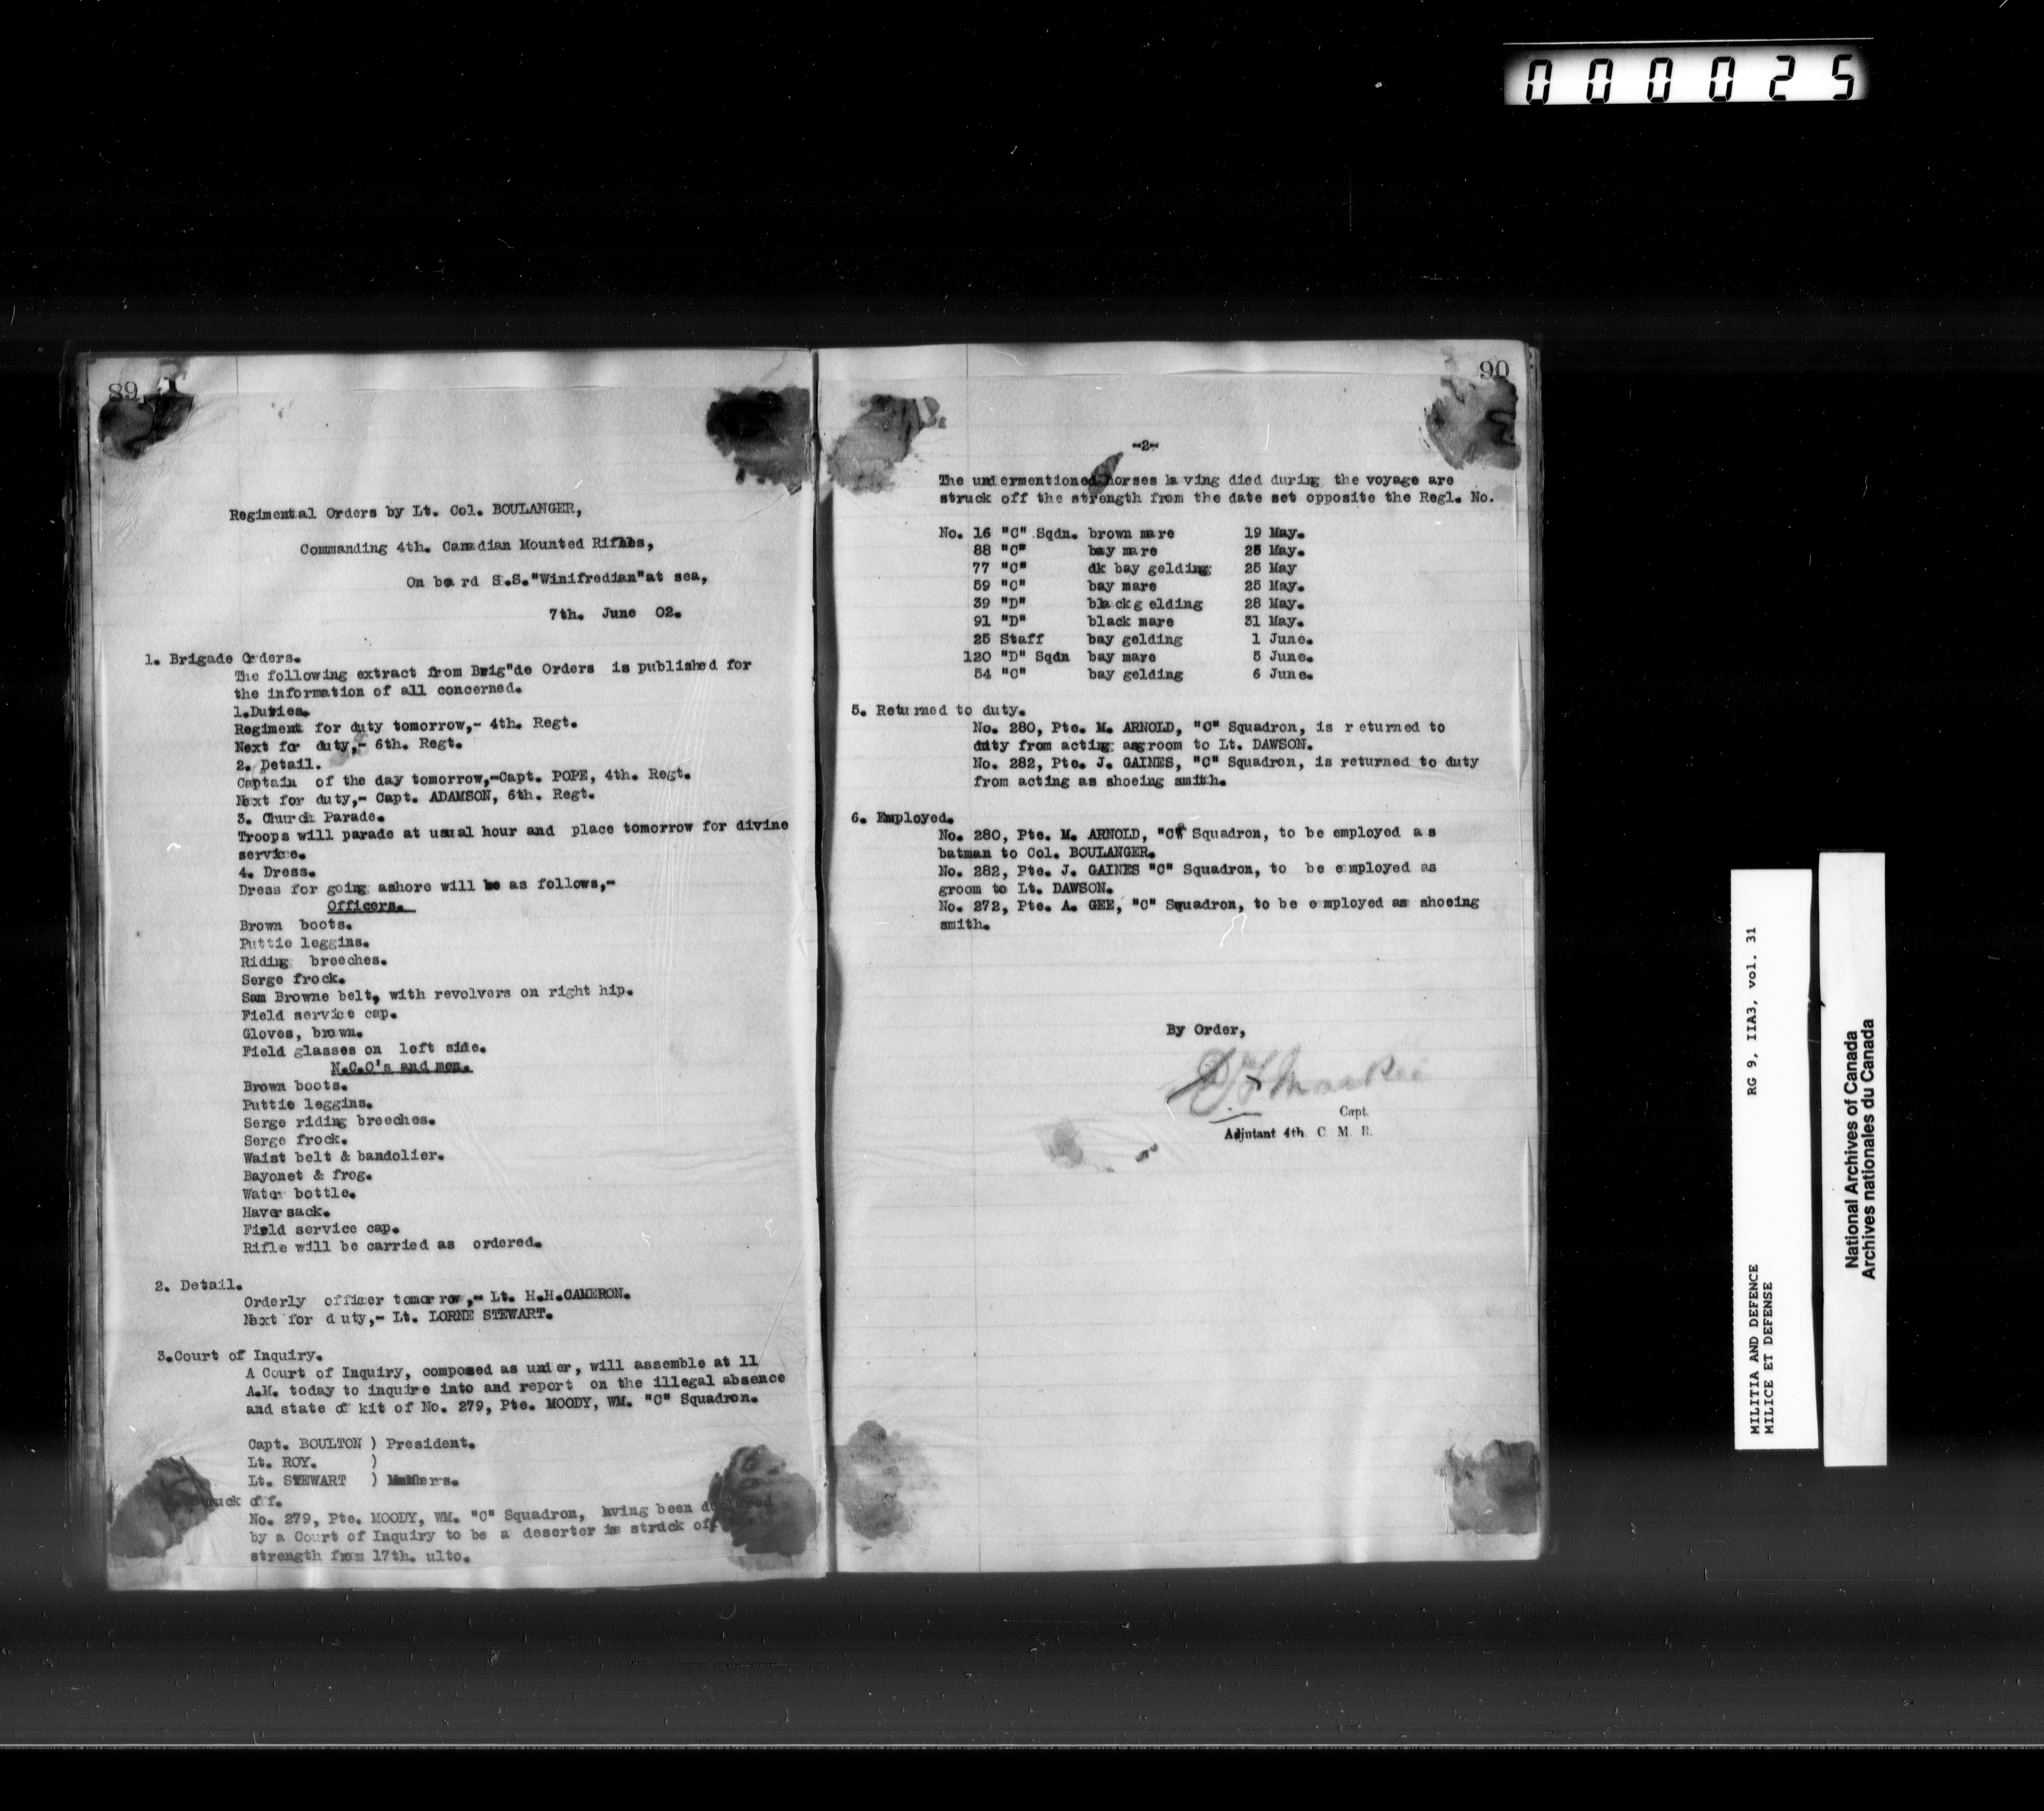 000025
89
Regimental Orders by Lt. Col. BOULANGER,
Commanding 4th. Canadian Mounted Rifles,
On board S.S."Winifredian"at sea,
7th. June 02.
1. Brigade Orders.
The following extract from Brig"de Orders is published for
the information of all concerned.
1.Duties.
Regiment for duty tomorrow,- 4th. Regt.
Next for duty,- 6th. Regt.
2. Detail.
Captain of the day tomorrow,-Capt. POPE, 4th. Regt.
Next for duty,- Capt. ADAMSON, 6th. Regt.
3. Church Parade.
Troops will parade at usual hour and place tomorrow for divine
service.
4. Dress.
Dress for going ashore will be as follows,-
Officers.
Brown boots.
Puttie leggins.
Riding breeches.
Serge frock.
Sam Browne belt, with revolvers on right hip.
Field service cap.
Gloves, brown.
Field glasses on left side.
N.C.O's and men.
Brown boots.
Puttie leggins.
Serge riding breeches.
Serge frock.
Waist belt & bandolier.
Bayonet & frog.
Water bottle.
Haversack.
Field service cap.
Rifle will be carried as ordered.
2. Detail.
Orderly officer tomorrow,- Lt. H.H.CAMERON.
Next for duty,- Lt. LORNE STEWART.
3.Court of Inquiry.
A Court of Inquiry, composed as under, will assemble at 11
A.M. today to inquire into and report on the illegal absence
and state of kit of No. 279, Pte. MOODY, WM. "C" Squadron.
Capt. BOULTON ) President.
Lt. ROY. )
Lt. STEWART ) Members.
Struck off.
No. 279, Pte. MOODY, WM. "C" Squadron, hving been declared
by a Court of Inquiry to be a deserter is struck off
strength from 17th. ulto.
90
-2-
The undermentioned horses having died during the voyage are
struck off the strength from the date set opposite the Regl. No.
No. 16 "C" Sqdn. brown mare 19 May.
88 "C" bay mare 25 May.
77 "C" dk bay gelding 25 May
59 "C" bay mare 25 May.
39 "D" black gelding 28 May.
91 "D" black mare 31 May.
25 Staff bay gelding 1 June.
120 "D" Sqdn bay mare 5 June.
54 "C" bay gelding 6 June.
5. Returned to duty.
No. 280, Pte. M. ARNOLD, "C" Squadron, is returned to
duty from acting as groom to Lt. DAWSON.
No. 282, Pte. J. GAINES, "C" Squadron, is returned to duty
from acting as shoeing smith.
6. Employed.
No. 280, Pte. M. ARNOLD, "C" Squadron, to be employed as
batman to Col. BOULANGER.
No. 282, Pte. J. GAINES "C" Squadron, to be employed as
groom to Lt. DAWSON.
No. 272, Pte. A. GEE, "C" Squadron, to be employed as shoeing
smith.
By Order,
Capt.
Adjutant 4th. C. M. R.
MILITIA AND DEFENCE RG 9, IIA3, vol. 31
MILICE ET DEFENSE
National Archives of Canada
Archives nationales du Canada